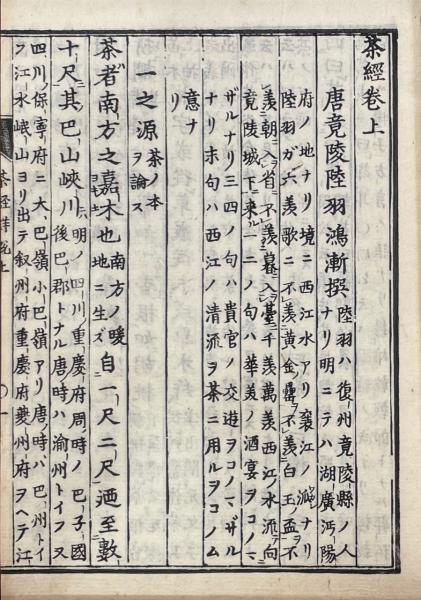 茶經卷上
唐竟陵陸羽鴻漸撰 陸羽ハ復州竟陵縣ノ人ナリ明ニテハ湖廣沔陽
府ノ地ナリ境ニ西江水アリ襄江ノ派ナリ
陸羽ガ六羨歌ニ不羨黄金罍不羨白玉盃不
羨朝入省不羨暮入臺千羨萬羨西江水流向
竟陵城下來ル一二ノ句ハ華美ノ酒宴ヲコノマ
ザルナリ三四ノ句ハ貴官ノ交遊ヲコノマザル
ナリ末句ハ西江ノ清流ヲ茶ニ用ルヲコノム
意ナリ
一之源 茶ノ本ヲ論ズ
茶者南方之嘉木也 南方ノ暖地ニ生ズ 自一尺二尺迺至數
十尺其巴山峽川 明ノ四川重慶府周ノ時ノ巴子國後巴郡トナル唐ノ時ハ渝州トイフ又
四川ノ保寧府ニ大巴嶺小巴嶺アリ唐ノ時ハ巴州トイ
フ江水岷山ヨリ出テ叙州府重慶府夔州府ヲヘテ江